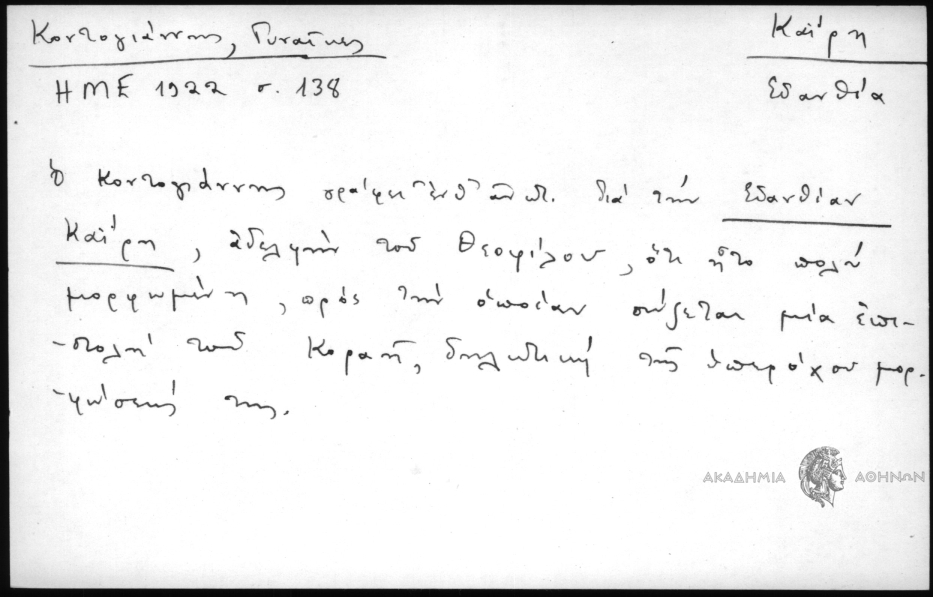 Κοντογιάννης, Γυναῖκες
Καΐρη
ΗΜΕ 1922 σ. 138
Εὐανθία
Ὁ Κοντογιάννης γράφει ἐνθ' ἀνωτ. διά τήν Εὐανθίαν
Καΐρη, ἀδελφήν τοῦ Θεοφίλου, ὅτι ἦτο πολύ
μορφωμένη, πρός τήν ὁποίαν σώζεται μία ἐπι-
-στολή τοῦ Κοραῆ, δηλωτική τῆς ὑπερόχου μορ-
-φώσεώς της.
ΑΚΑΔΗΜΙΑ ΑΘΗΝΩΝ